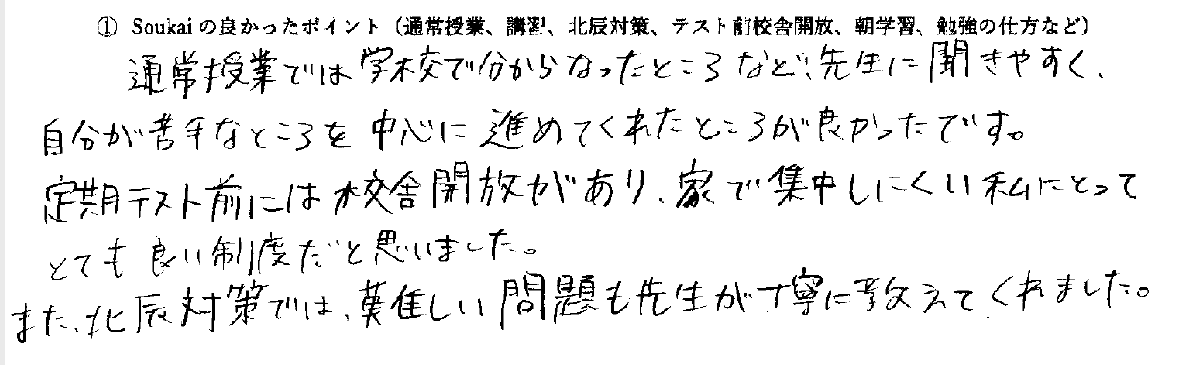 ① Soukai の良かったポイント（通常授業、講習、北辰対策、テスト前校舎開放、朝学習、勉強の仕方など）
通常授業では学校で分からなったところなど、先生に聞きやすく、
自分が苦手なところを中心に進めてくれたところが良かったです。
定期テスト前には校舎開放があり、家で集中しにくい私にとって
とても良い制度だと思いました。
また、北辰対策では、難しい問題も先生が丁寧に教えてくれました。